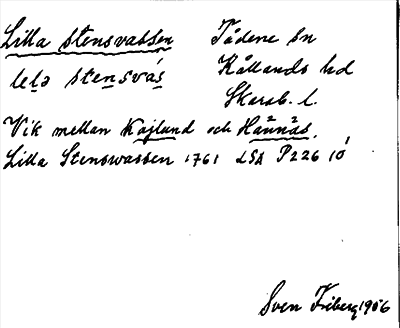 Lilla Stensvassen Tådene sn
lelə stensvás Kållands hd
Skarab. l.
Vik mellan Kajlund och Hännäs.
Lilla Stenswassen 1761 LSA P226 10¹
Sven Friberg 1906